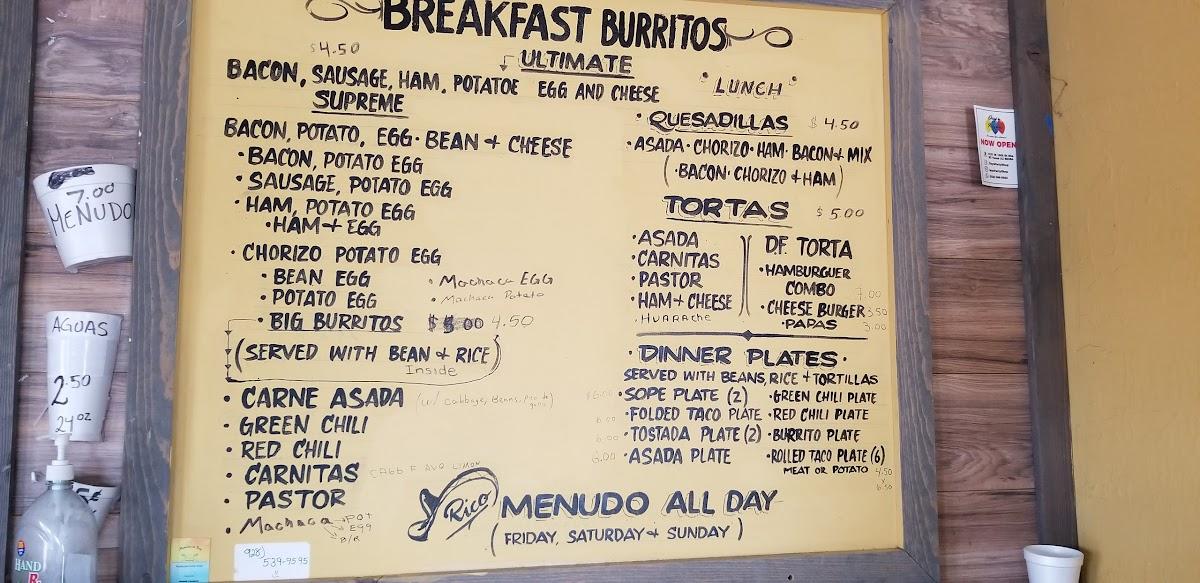 BREAKFAST BURRITOS
$4.50
ULTIMATE
BACON, SAUSAGE, HAM, POTATOE EGG AND CHEESE
SUPREME
BACON, POTATO, EGG · BEAN + CHEESE
· BACON, POTATO EGG
· SAUSAGE, POTATO EGG
· HAM, POTATO EGG
· HAM + EGG
· CHORIZO POTATO EGG
· BEAN EGG
· POTATO EGG
· Machaca EGG
· Machaca Potato
· BIG BURRITOS $ 5.00 4.50
(SERVED WITH BEAN + RICE)
Inside
· CARNE ASADA (w/ Cabbage, Beans,
· GREEN CHILI
· RED CHILI
· CARNITAS
· PASTOR
· Machaca POT
EGG
B/R
"LUNCH"
· QUESADILLAS $4.50
· ASADA · CHORIZO · HAM · BACON + MIX
( · BACON · CHORIZO + HAM)
TORTAS $5.00
· ASADA
· CARNITAS
· PASTOR
· HAM + CHEESE
· HUARAche
D.F. TORTA
· HAMBURGUER
COMBO 7.00
· CHEESE BURGER 3.50
· PAPAS 3.00
· DINNER PLATES ·
SERVED WITH BEANS, RICE + TORTILLAS
$6.00 · SOPE PLATE (2)
6.00 · FOLDED TACO PLATE
6.00 · TOSTADA PLATE (2)
6.00 · ASADA PLATE
· GREEN CHILI PLATE
· RED CHILI PLATE
· BURRITO PLATE
· ROLLED TACO PLATE (6)
MEAT OR POTATO 4.50
6.50
Rico MENUDO ALL DAY
(FRIDAY, SATURDAY + SUNDAY)
928)
539-9595
7.00
MENUDO
AGUAS
2.50
24 oz
HAND
NOW OPEN